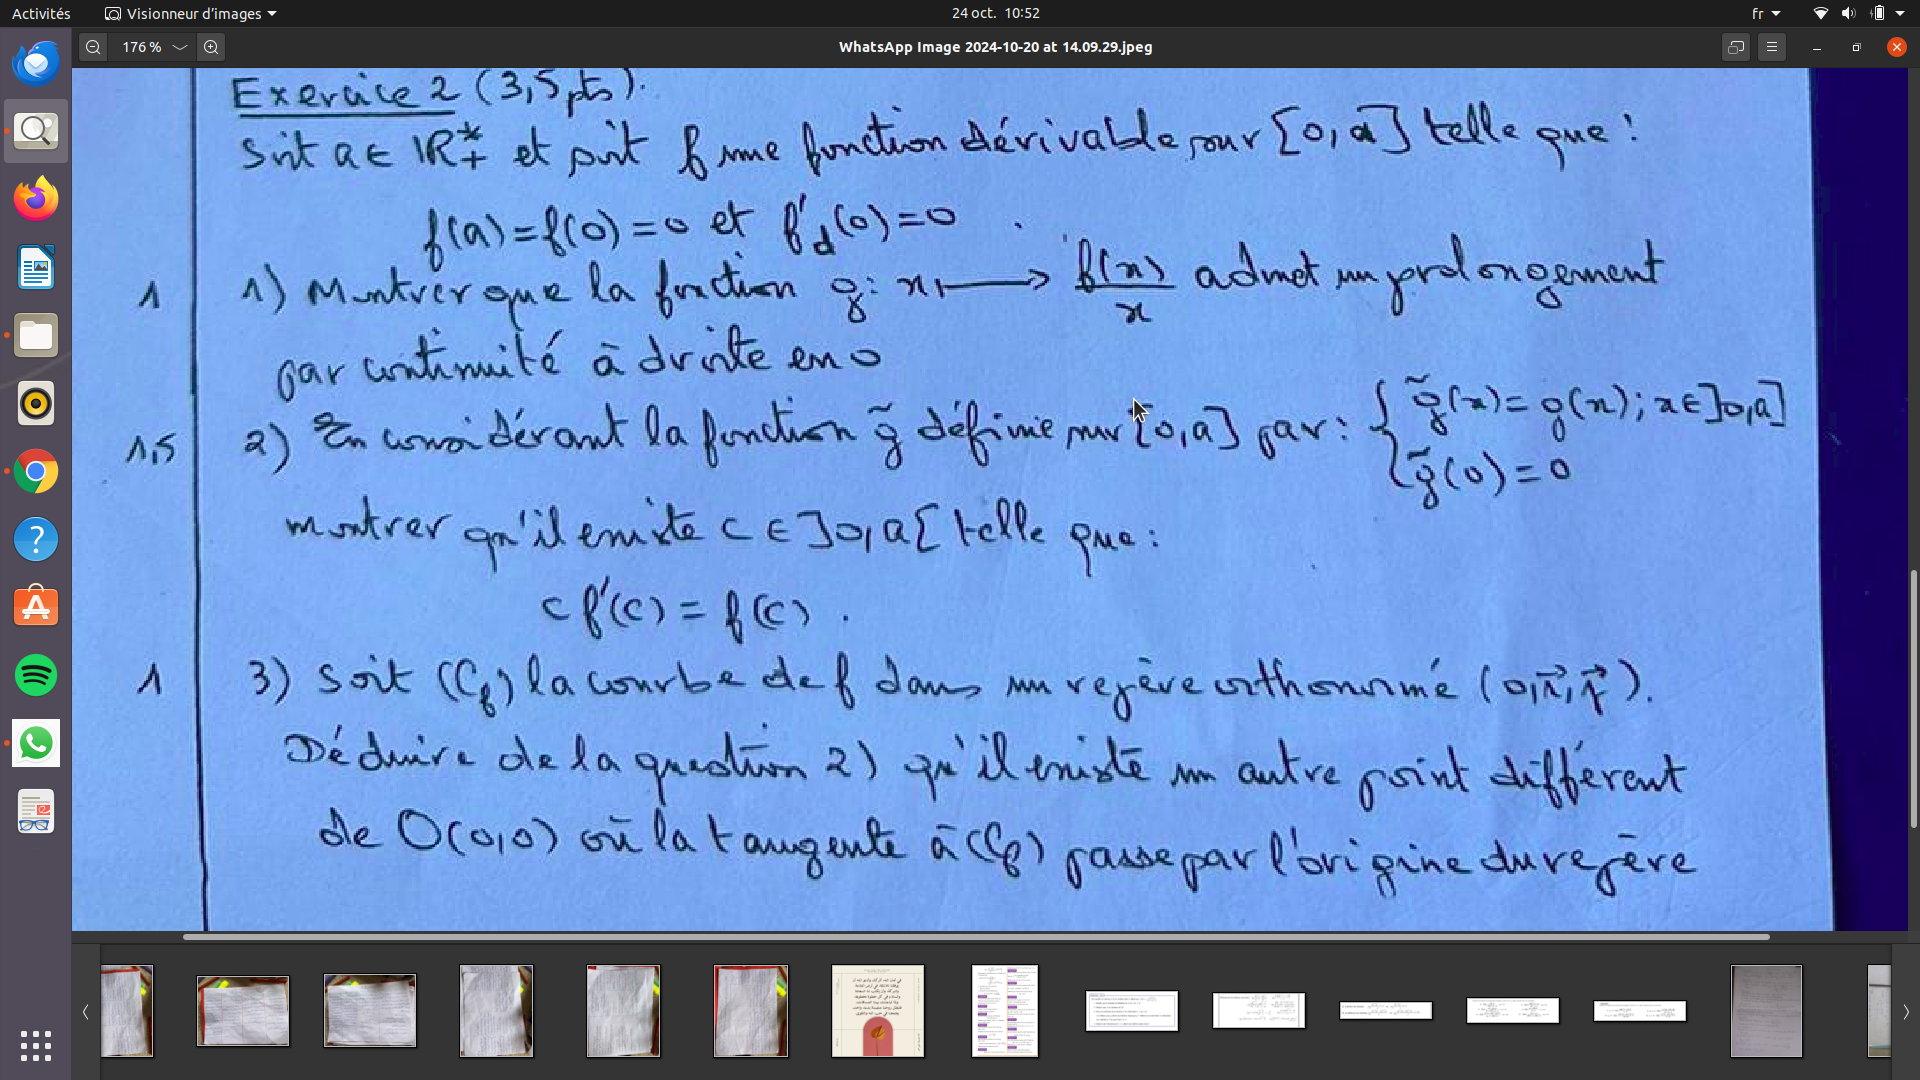 Activités
Visionneur d'images
24 oct. 10:52
fr
176 %
WhatsApp Image 2024-10-20 at 14.09.29.jpeg
Exercice 2 (3,5 pts).
Soit a ∈ IR*₊ et soit f une fonction dérivable sur [0,a] telle que :
f(a)=f(0)=0 et f'd(0)=0 .
1 1) Montrer que la fonction g: x ⟼ f(x)/x admet un prolongement
par continuité à droite en 0
1,5 2) En considérant la fonction g̃ définie sur [0,a] par : { g̃(x)=g(x); x∈]0,a]
g̃(0)=0
montrer qu'il existe c ∈ ]0,a[ telle que :
c f'(c) = f(c) .
1 3) Soit (Cf) la courbe de f dans un repère orthonormé (0,i⃗,j⃗).
Déduire de la question 2) qu'il existe un autre point différent
de O(0,0) où la tangente à (Cf) passe par l'origine du repère